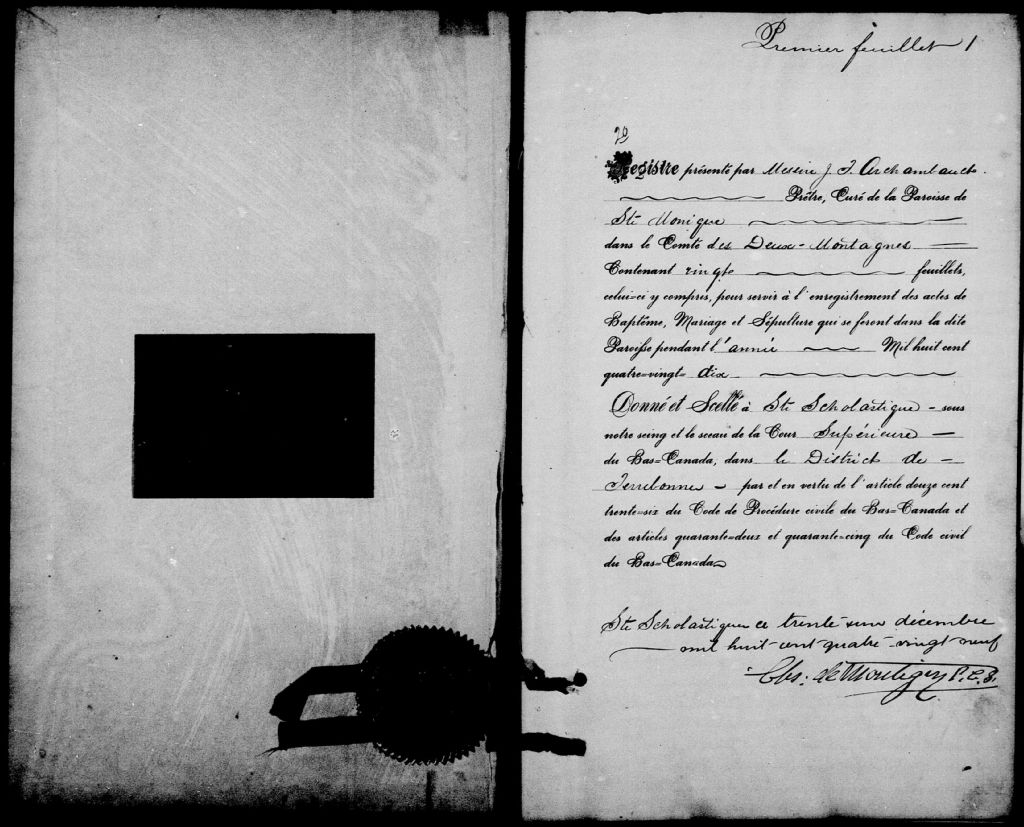 Premier feuillet 1
20
Registre présenté par Messire J. T. Archambault
Prêtre, Curé de la Paroisse de
Ste Monique
dans le Comté des Deux-Montagnes
Contenant vingt feuillets,
celui=ci y compris, pour servir à l'enregistrement des actes de
Baptême, Mariage et Sépulture qui se feront dans la dite
Paroisse pendant l'année Mil huit cent
quatre=vingt= dix
Donné et Scellé à Ste Scholastique - sous
notre seing et le sceau de la Cour Supérieure
du Bas=Canada, dans le District de
Terrebonne - par et en vertu de l'article douze cent
trente=six du Code de Procédure civile du Bas=Canada et
des articles quarante=deux et quarante=cinq du Code civil
du Bas=Canada
Ste Scholastique ce trente-un décembre
mil huit-cent quatre-vingt neuf
Chs. de Montigny P.C.S.